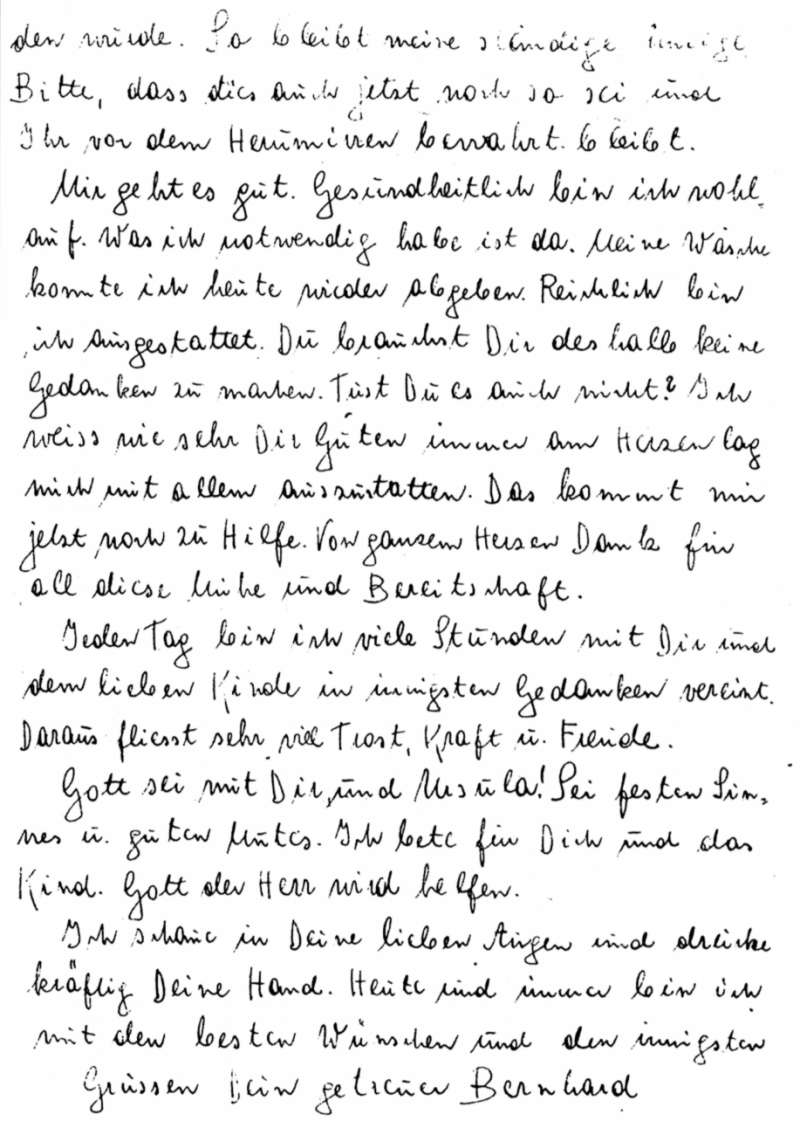 den würde. So bleibt meine ständige innige
Bitte, dass dies auch jetzt noch so sei und
Ihr vor dem Herumirren bewahrt bleibt.
Mir geht es gut. Gesundheitlich bin ich wohl
auf. Was ich notwendig habe ist da. Meine Wäsche
konnte ich heute wieder abgeben. Reichlich bin
ich ausgestattet. Du brauchst Dir deshalb keine
Gedanken zu machen. Tust Du es auch nicht? Ich
weiss wie sehr Dir Guten immer am Herzen lag
mich mit allem auszustatten. Das kommt mir
jetzt noch zu Hilfe. Von ganzem Herzen Dank für
all diese Mühe und Bereitschaft.
Jeden Tag bin ich viele Stunden mit Dir und
dem lieben Kinde in innigsten Gedanken vereint.
Daraus fliesst sehr viel Trost, Kraft u. Freude.
Gott sei mit Dir, und Ursula! Sei festen Sin-
nes u. guten Mutes. Ich bete für Dich und das
Kind. Gott der Herr wird helfen.
Ich schaue in Deine lieben Augen und drücke
kräftig Deine Hand. Heute und immer bin ich
mit den besten Wünschen und den innigsten
Grüssen Dein getreuer Bernhard